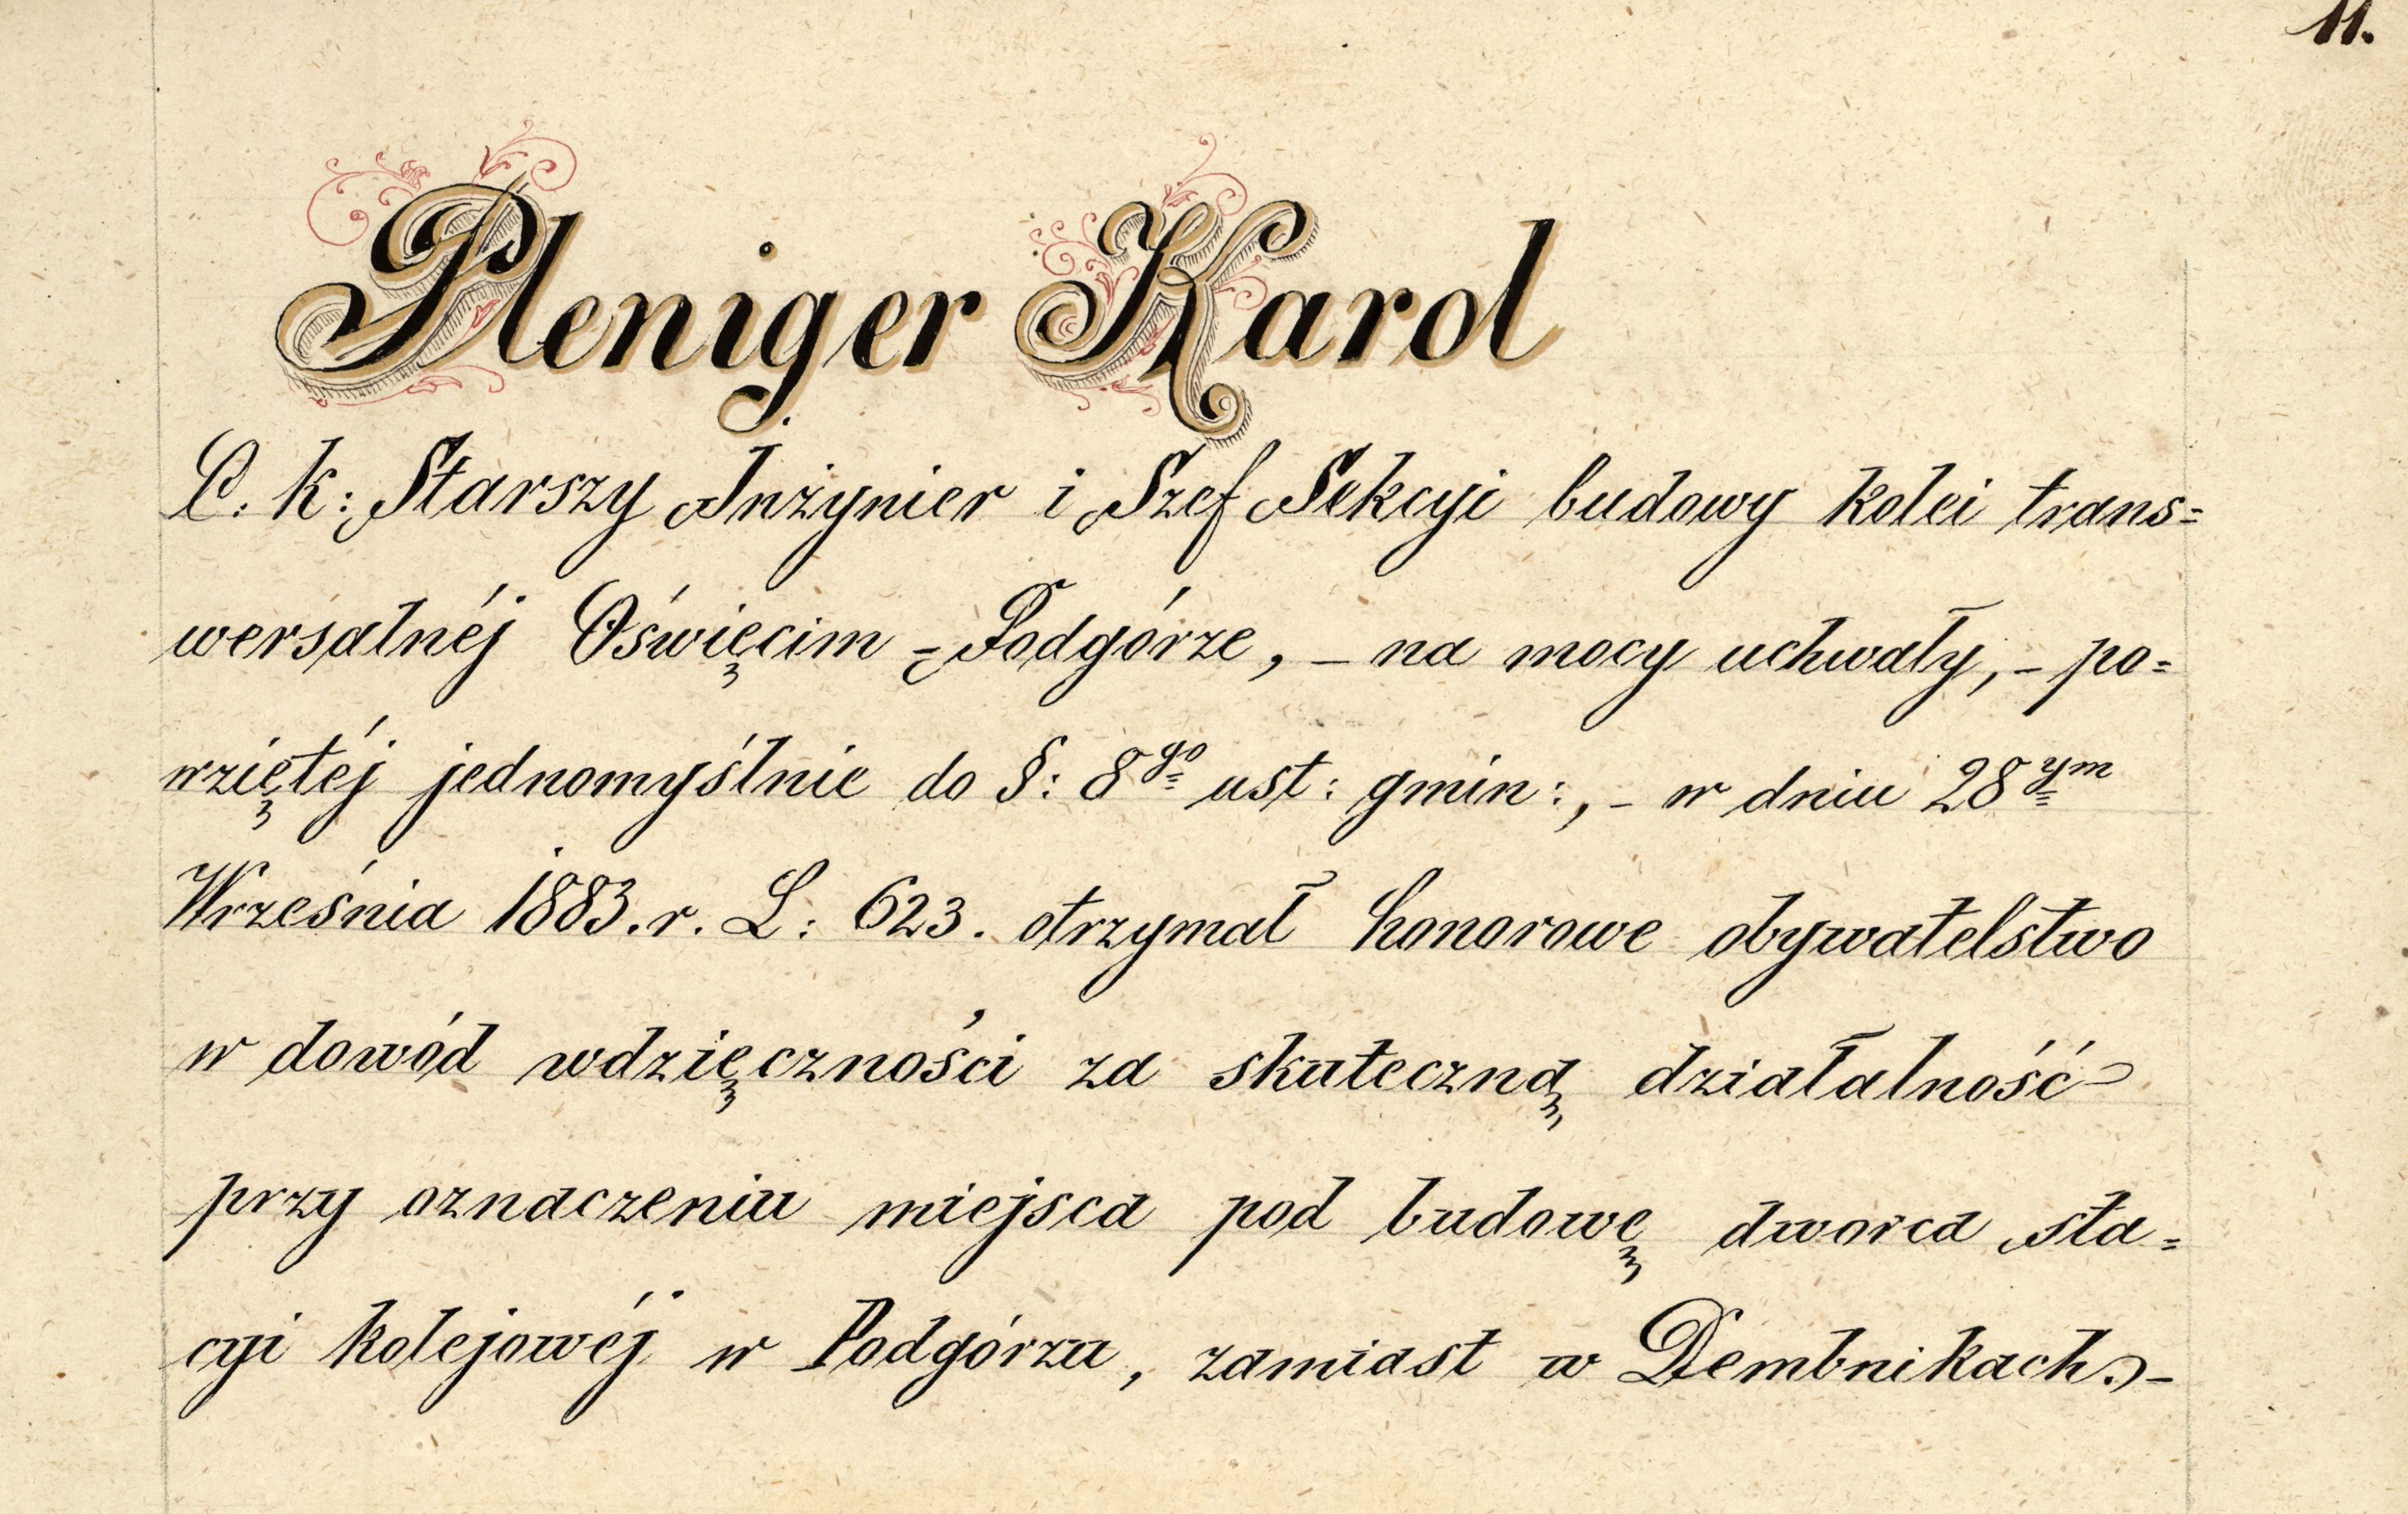 11.
Pleniger Karol
C. k: Starszy Inżynier i Szef Sekcyi budowy kolei trans=
wersalnéj Oświęcim - Podgórze, - na mocy uchwały, - po=
wziętéj jednomyślnie do §: 8go ust: gmin:, - w dniu 28ym
Września 1883. r. L: 623. otrzymał honorowe obywatelstwo
w dowód wdzięczności za skuteczną działalność
przy oznaczeniu miejsca pod budowę dworca sta=
cyi kolejowéj w Podgórzu, zamiast w Dembnikach. -